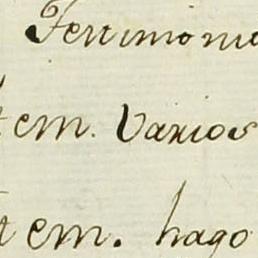 Testimonio
tem. Varios
tem. hago